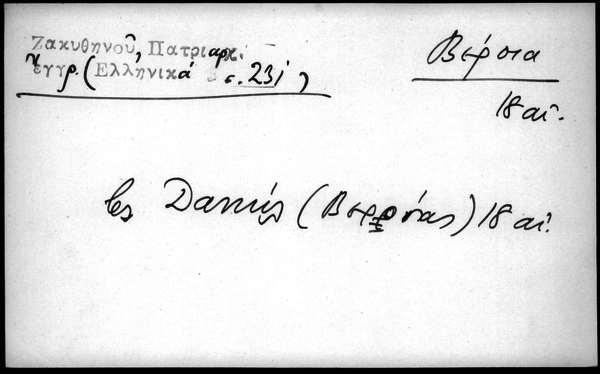 Ζακυθηνοῦ, Πατριαρχ.
ἔγγρ. (Ἑλληνικά σ. 231)
Βέροια
18 αἰ.
Δανιήλ (Βερροίας) 18 αἰ.